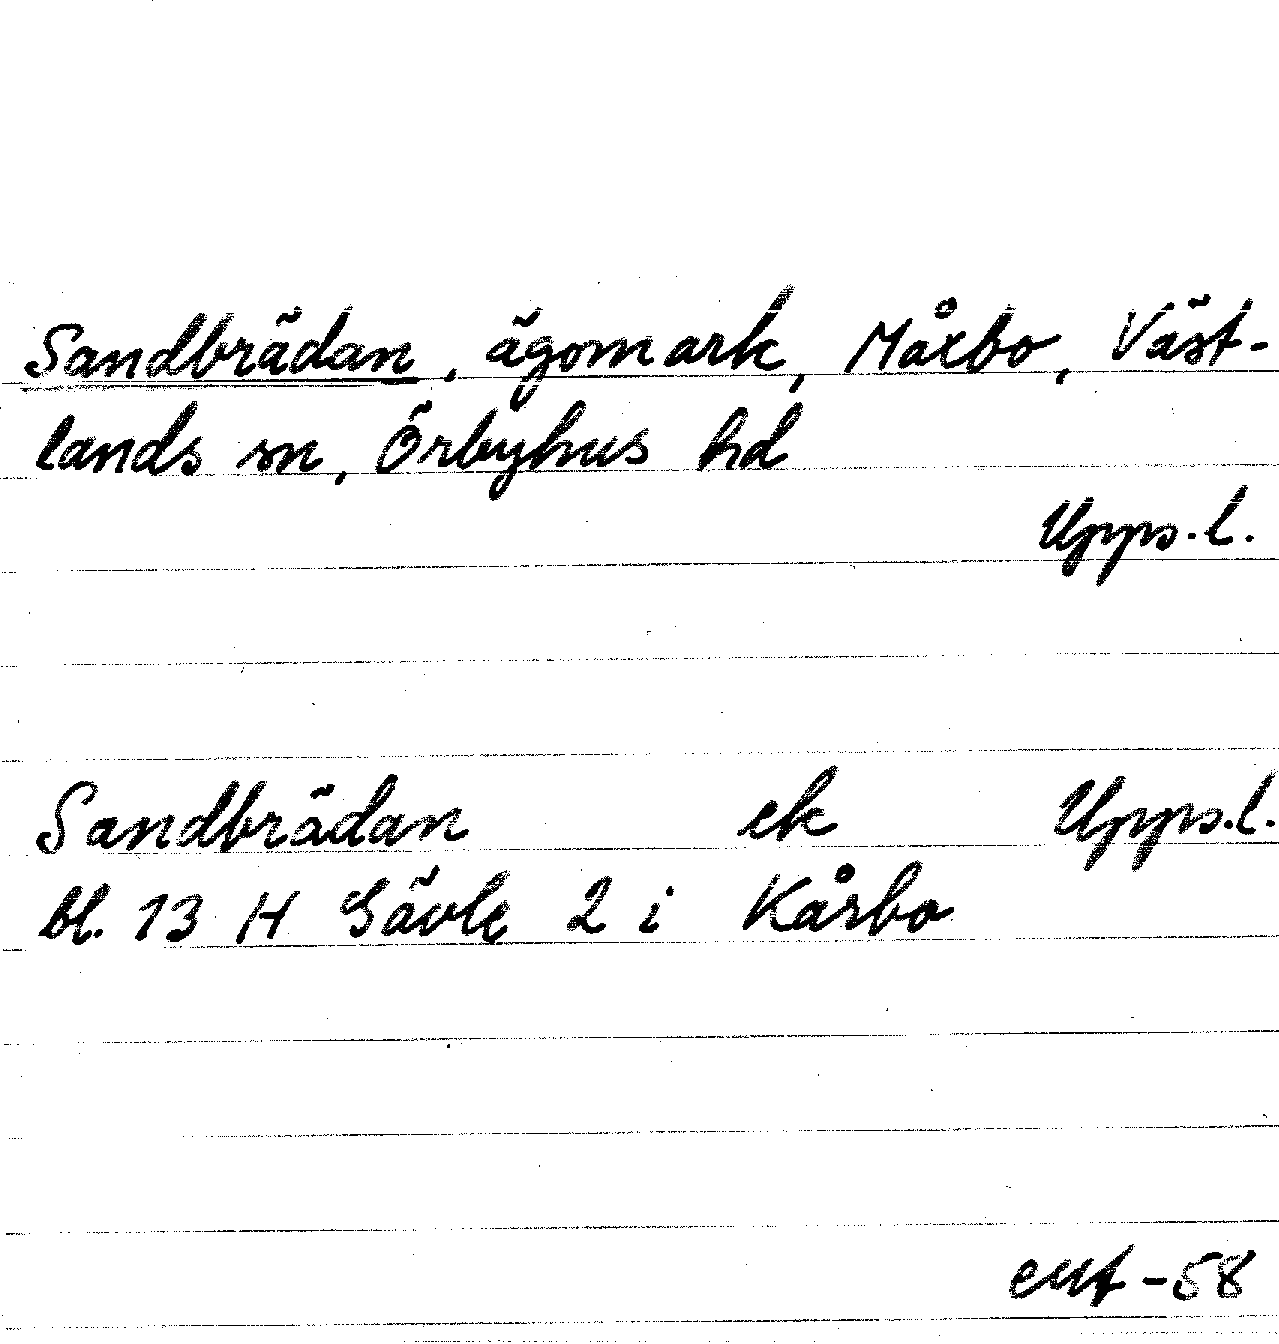 Sandbrädan, ägomark, Mårbo, Väst-
lands sn, Örbyhus hd
Upps.l.
Sandbrädan ek Upps.l.
bl. 13 H Gävle 2 i Kårbo
-58